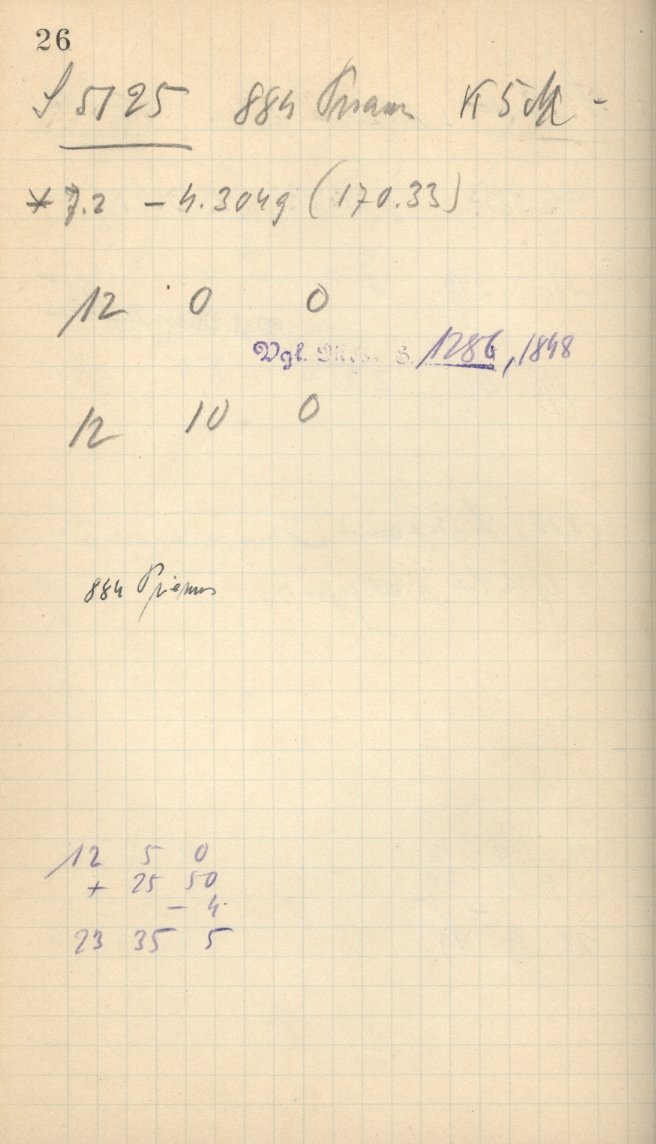 26
S 5125 884 Priam K 5
* 7.2 – 4.3049 (170.33)
12 0 0
Vgl. S. 1286, 1848
12 10 0
884 Priamus
12 5 0
+ 25 50
– 4
23 35 5